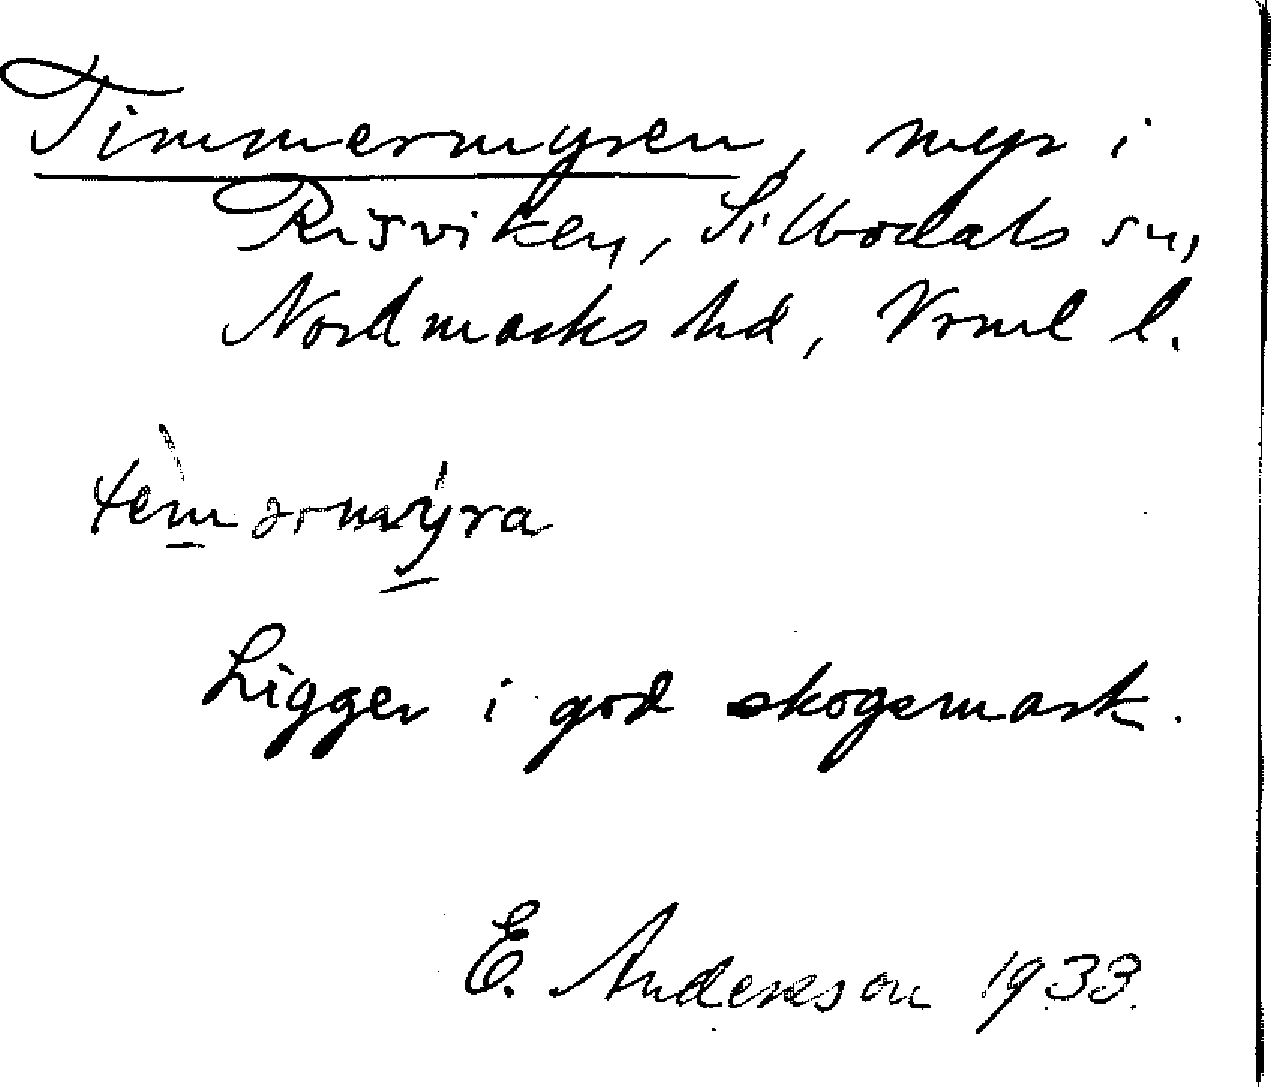 Timmermyren, myr i
Risviken, Silbodals sn,
Nordmarks hd, Vrml l.
tèmərmýra
Ligger i god skogsmark.
E. Anderson 1933.